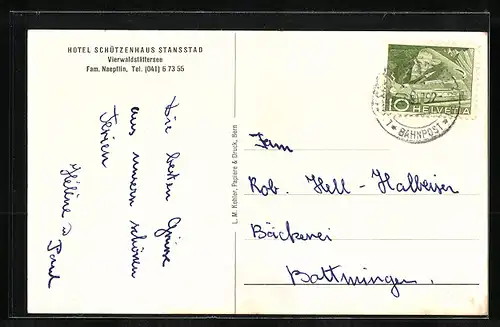 HOTEL SCHÜTZENHAUS STANSSTAD
Vierwaldstättersee
Fam. Naepflin, Tel. (041) 6 73 55
Die besten Grüsse
aus unsern schönen
Ferien
Hélène u Paul
L. M. Kohler, Papiere & Druck, Bern
10 HELVETIA
* BAHNPOST *
Fam
Rob. Hell - Halbeisen
Bäckerei
Battmingen.